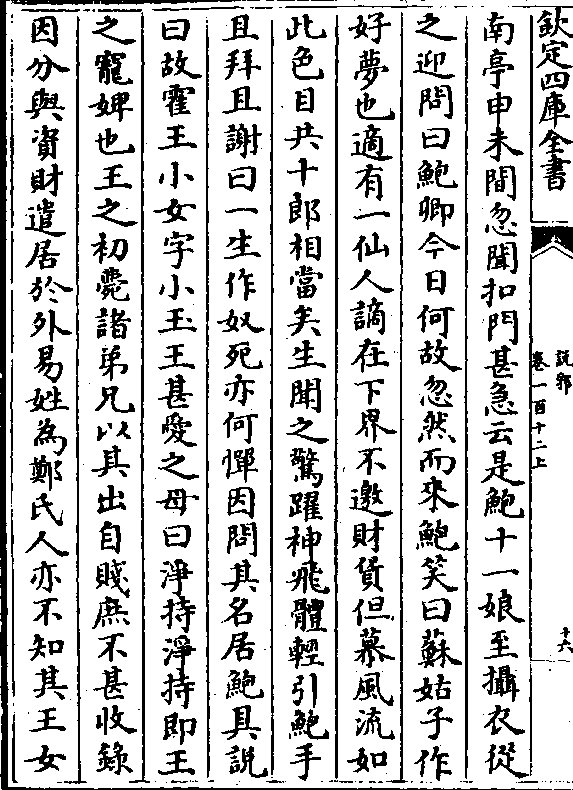 欽定四庫全書
說郛
卷一百十二上
十六
南亭申未間忽聞扣門甚急云是鮑十一娘至攝衣從
之迎問曰鮑卿今日何故忽然而來鮑笑曰蘇姑子作
好夢也適有一仙人謫在下界不邀財貨但慕風流如
此色目共十郎相當矣生聞之驚躍神飛體輕引鮑手
且拜且謝曰一生作奴死亦何憚因問其名居鮑具説
曰故霍王小女字小玉王甚愛之母曰淨持淨持即王
之寵婢也王之初薨諸弟兄以其出自賤庶不甚收錄
因分與資財遣居於外易姓為鄭氏人亦不知其王女